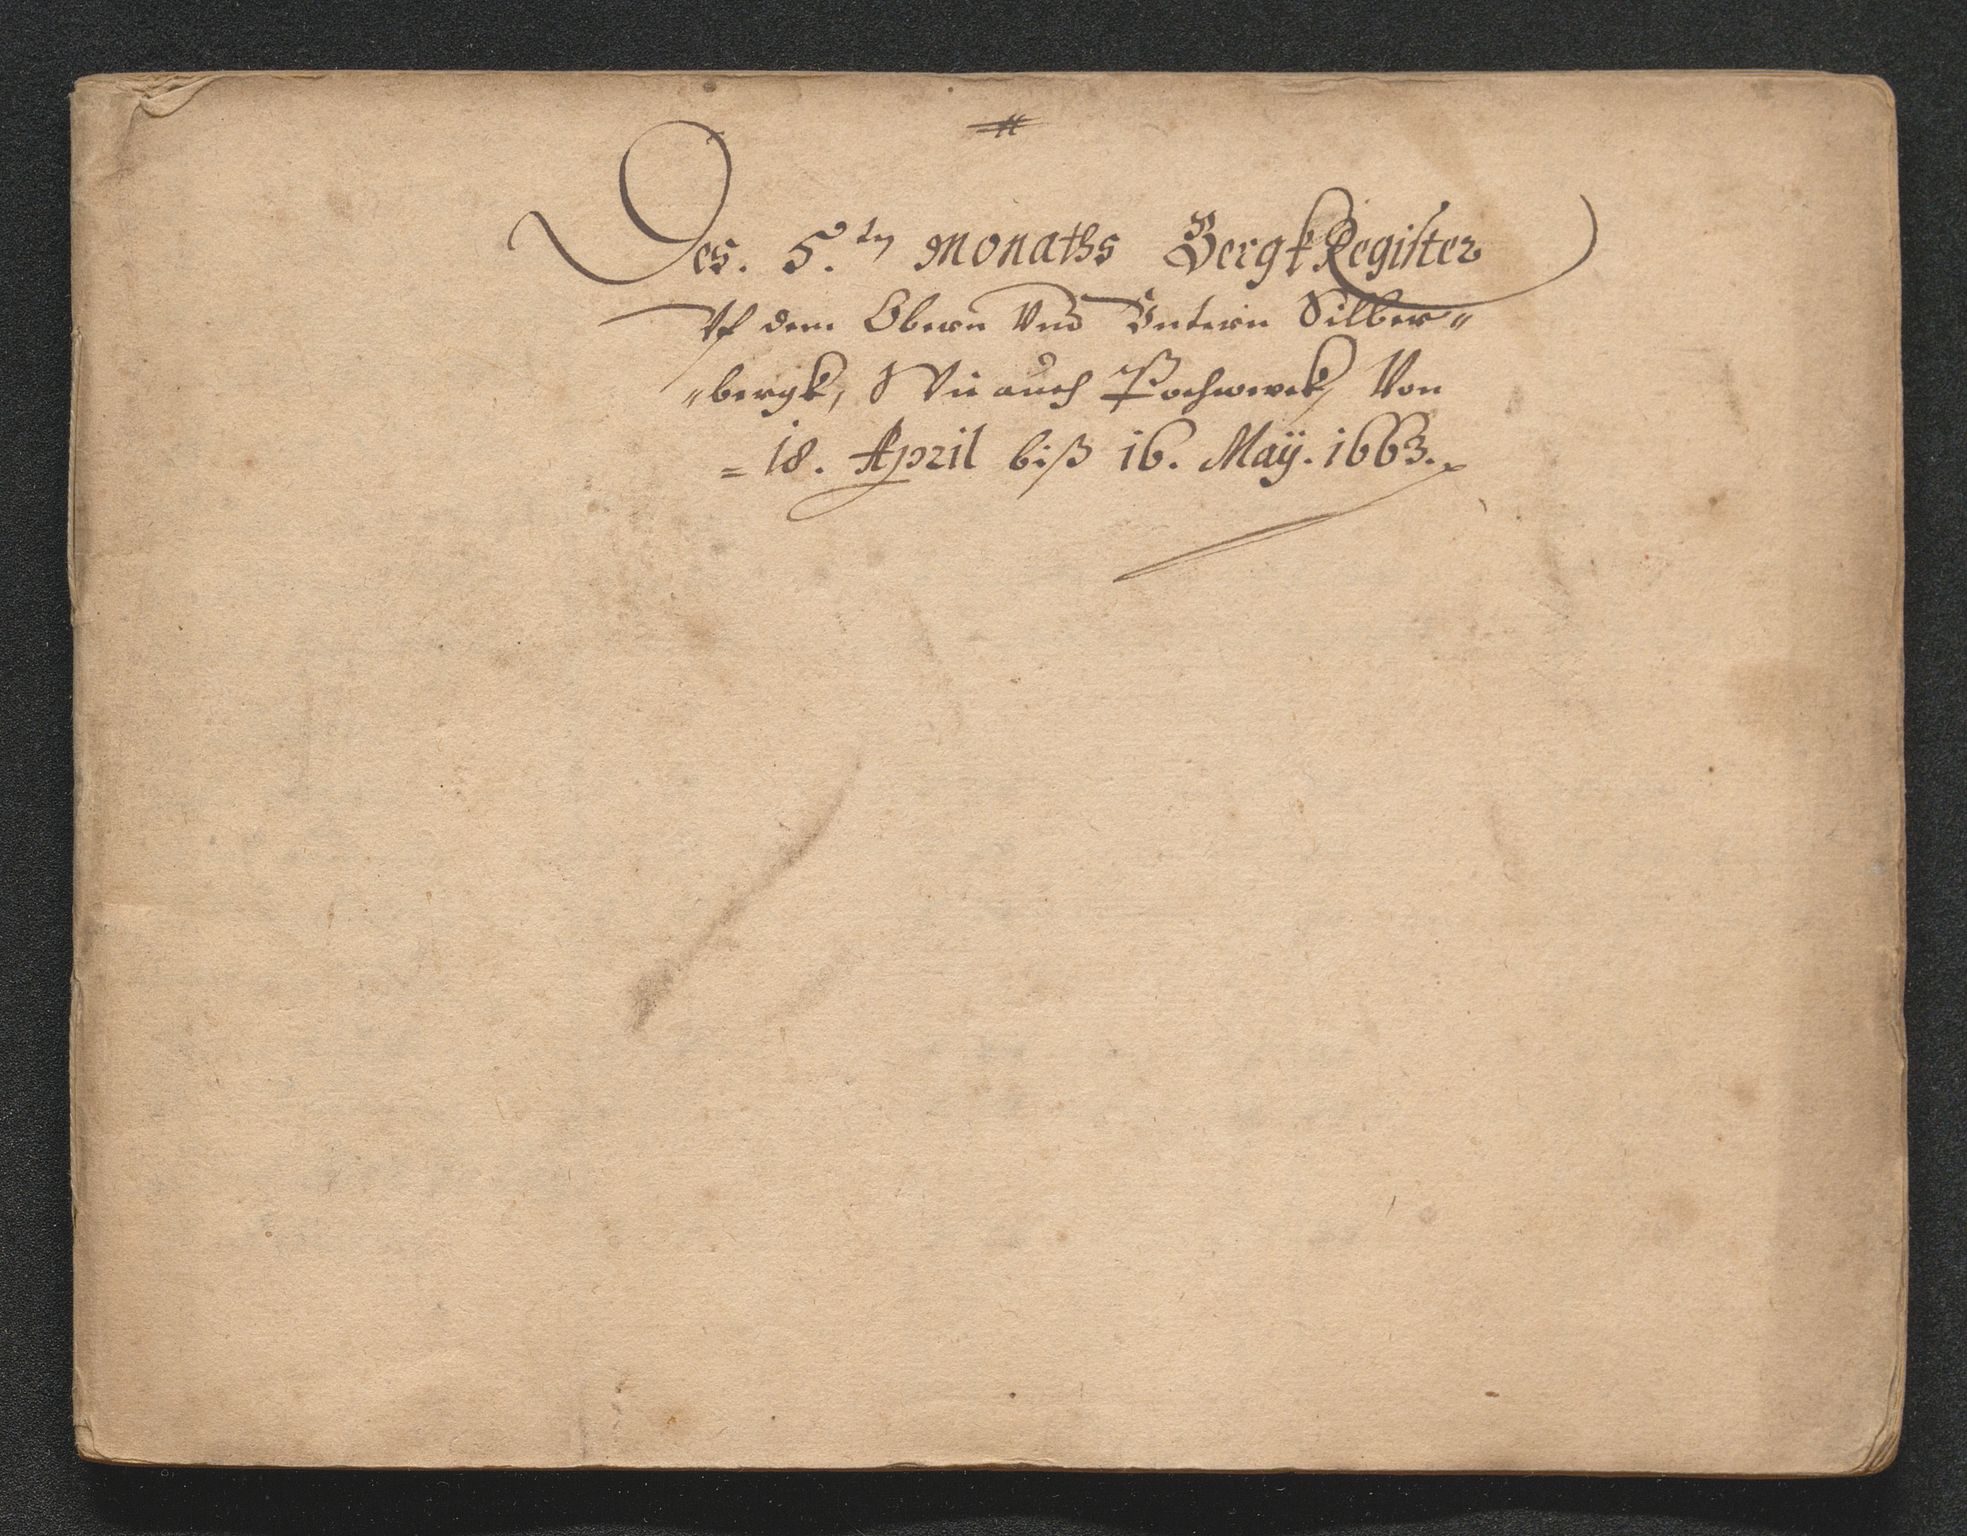 Des. 5.tn Monaths BergkRegister
Vf dem Obern Vnd Vntern Silber„
„bergk, Wie auch Pochwerck, Von
= 18. April biß 16. Maÿ. 1663.